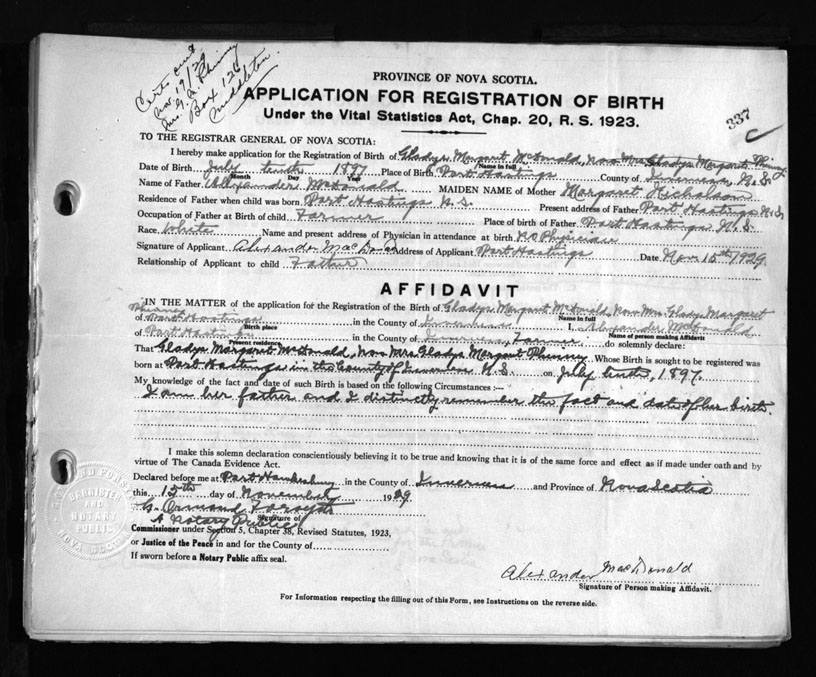 Certs and
Nov. 19/29
Mrs. G. A. Phinney
Box 128
Middleton.
PROVINCE OF NOVA SCOTIA.
APPLICATION FOR REGISTRATION OF BIRTH
Under the Vital Statistics Act, Chap. 20, R. S. 1923.
337
TO THE REGISTRAR GENERAL OF NOVA SCOTIA:
I hereby make application for the Registration of Birth of Gladys Margaret McDonald, Now Mrs. Gladys Margaret Phinney
Name in full
Date of Birth July tenth 1897 Place of Birth Port Hastings County of Inverness, N.S.
Month Day Year
Name of Father Alexander McDonald MAIDEN NAME of Mother Margaret Nicholson
Residence of Father when child was born Port Hastings N.S. Present address of Father Port Hastings N.S.
Occupation of Father at Birth of child Farmer Place of birth of Father Port Hastings N.S.
Race White Name and present address of Physician in attendance at birth No Physician
Signature of Applicant Alexander MacDonald Address of Applicant Port Hastings Date Nov 15th 1929
Relationship of Applicant to child Father
AFFIDAVIT
IN THE MATTER of the application for the Registration of the Birth of Gladys Margaret McDonald, Now Mrs. Gladys Margaret
Phinney Name in full
of Port Hastings in the County of Inverness I, Alexander McDonald
Birth place Name of person making Affidavit
of Port Hastings in the County of Inverness, Farmer do solemnly declare:
Present residence
That Gladys Margaret McDonald, Now Mrs Gladys Margaret Phinney Whose Birth is sought to be registered was
born at Port Hastings in the County of Inverness N.S on July tenth, 1897.
My knowledge of the fact and date of such Birth is based on the following Circumstances :—
I am her father and I distinctly remember the fact and date of her birth.
I make this solemn declaration conscientiously believing it to be true and knowing that it is of the same force and effect as if made under oath and by
virtue of The Canada Evidence Act.
Declared before me at Port Hawkesbury in the County of Inverness and Province of Nova Scotia
this 15th day of November 1929
G. Ormond Forsyth
Signature of
A Notary Public
Commissioner under Section 5, Chapter 38, Revised Statutes, 1923,
or Justice of the Peace in and for the County of
If sworn before a Notary Public affix seal.
BARRISTER
AND
NOTARY
PUBLIC
NOVA SCOTIA
Alexander MacDonald
Signature of Person making Affidavit.
For Information respecting the filling out of this Form, see Instructions on the reverse side.